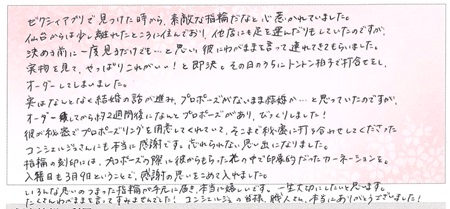 ゼクシィアプリで見つけた時から、素敵な指輪だなと心惹かれていました。
仙台からは少し離れたところに住んでおり、他店にも足を運んだりもしていたのですが、
決める前に一度見るだけでも…と思い、彼にわがままを言って連れてきてもらいました。
実物を見て、やっぱりこれがいい!と即決。その日のうちにトントン拍子で打合せをし、
オーダーしてしまいました。
実はなんとなく結婚の話が進み、プロポーズがないまま結婚か…と思っていたのですが、
オーダーしてから約2週間後になんとプロポーズがあり、びっくりしました!
彼が秘密でプロポーズリングを用意してくれていて、そこまで秘密に打ち合わせしてくださった
コンシェルジュさんにも本当に感謝です。忘れられない思い出になりました。
指輪の刻印には、プロポーズの際に彼からもらった花の中で印象的だったカーネーションを。
入籍日も3月9日ということで、感謝の思いをこめて入れました。
いろんな思いのつまった指輪が手元に届き、本当に嬉しいです。一生大切にしたいと思います。
たくさんわがまま言ってすみませんでした!コンシェルジュの皆様、職人さん、本当にありがとうございました!